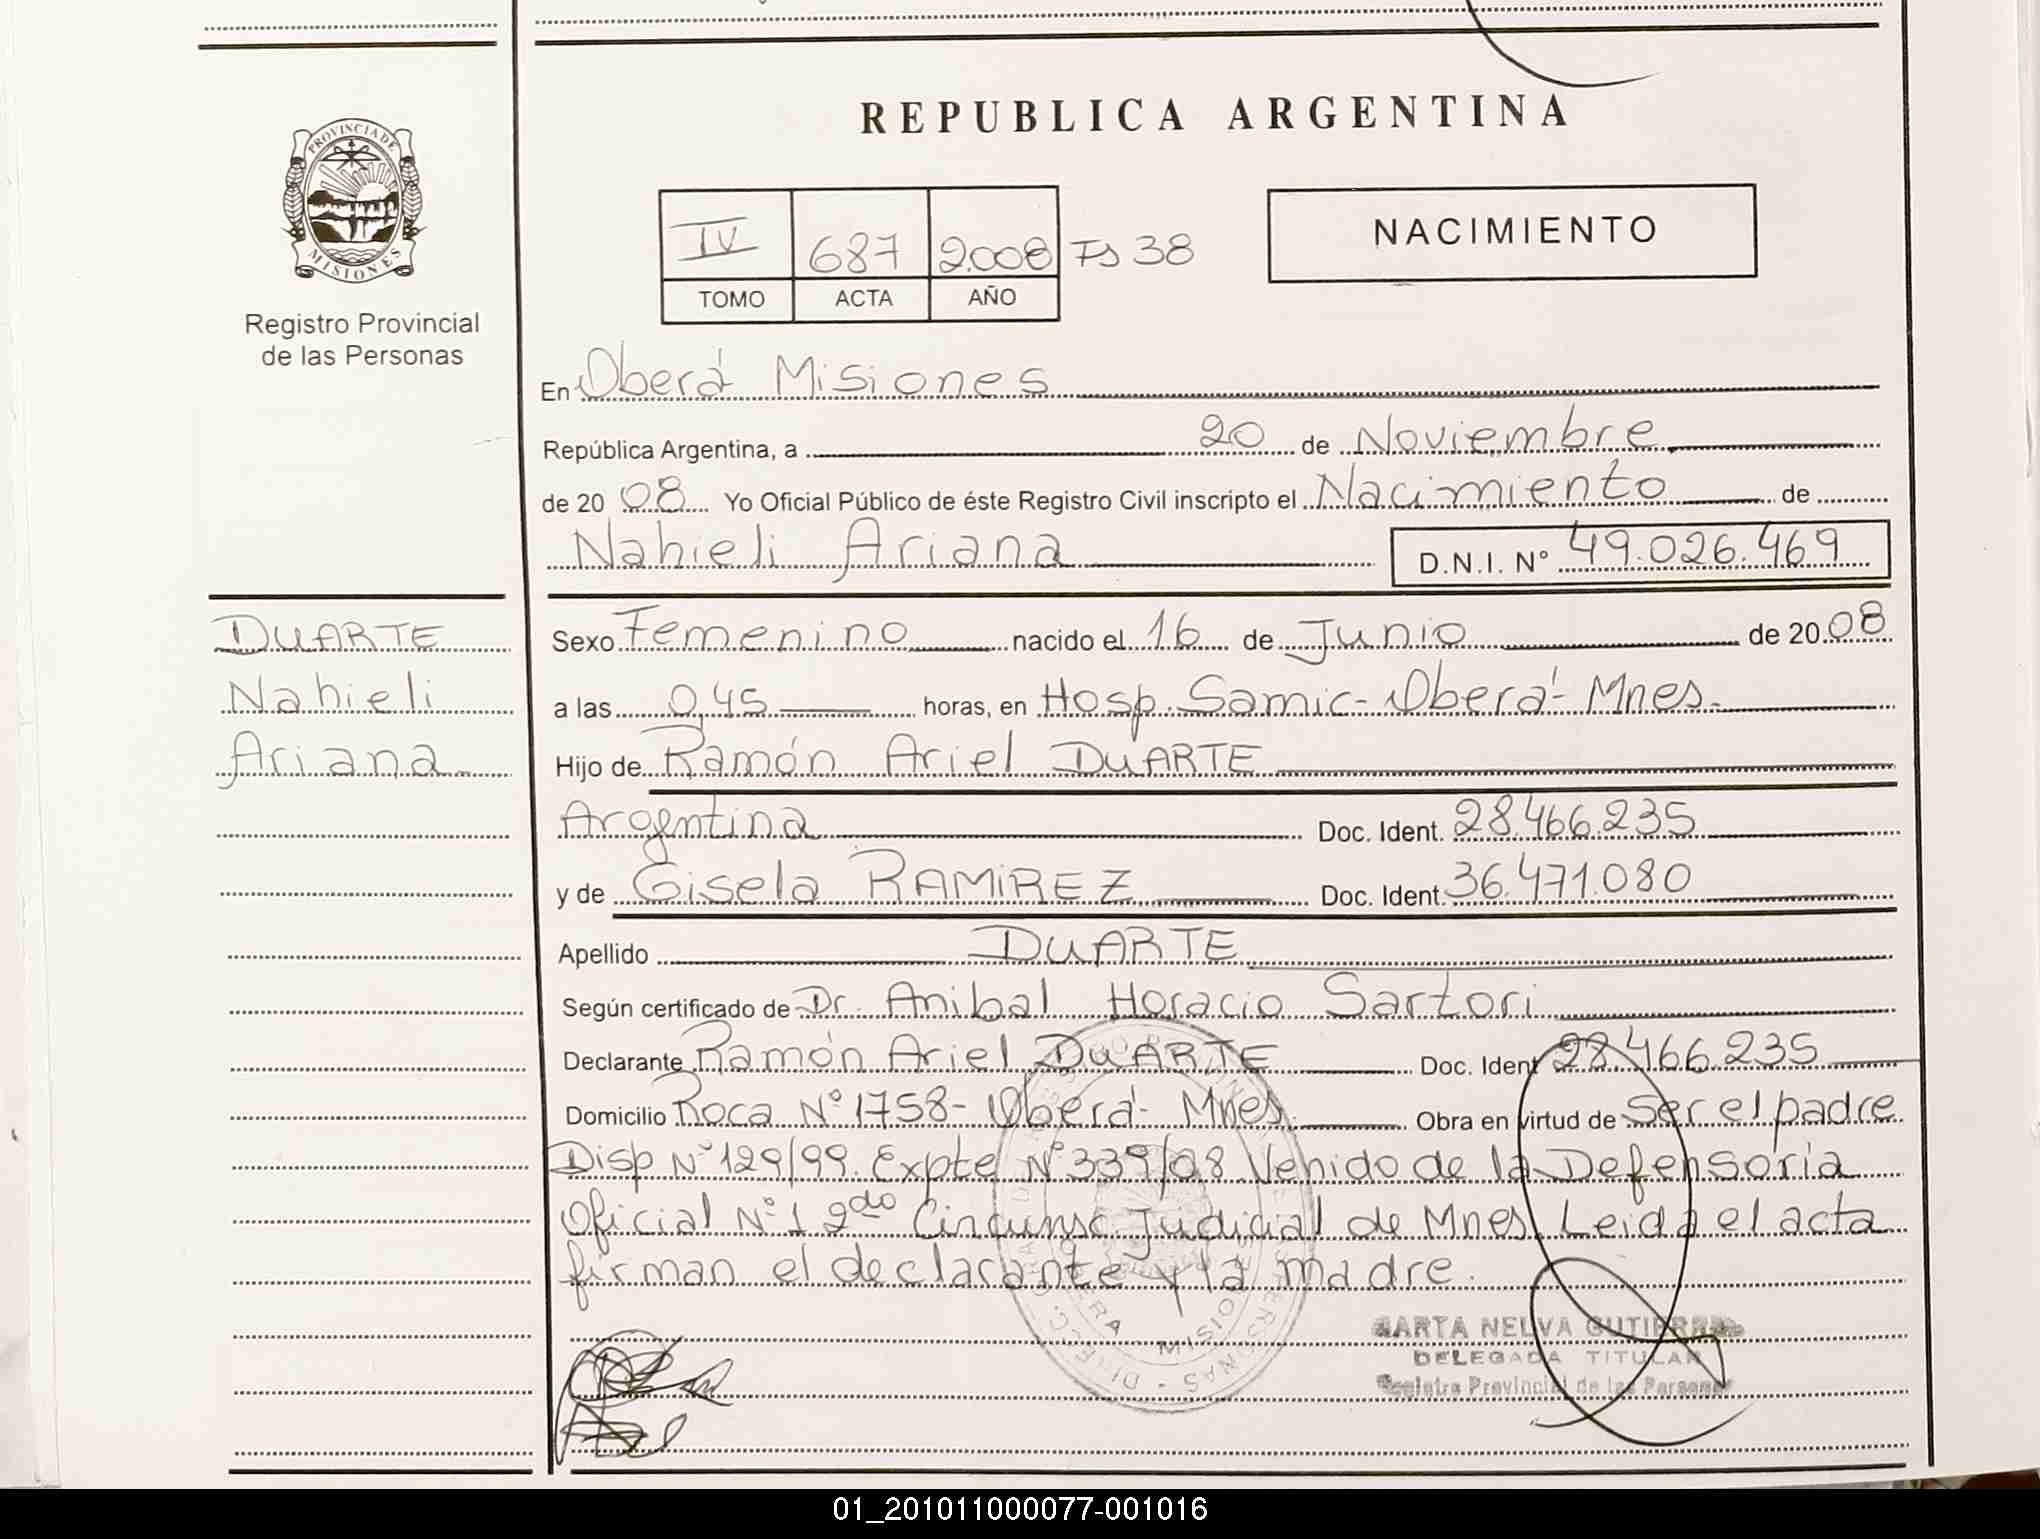 REPUBLICA ARGENTINA
PROVINCIA DE
MISIONES
Registro Provincial
de las Personas
IV 687 2.008 Fs 38
TOMO ACTA AÑO
NACIMIENTO
En Oberá Misiones
República Argentina, a 20 de Noviembre
de 20 08 Yo Oficial Público de éste Registro Civil inscripto el Nacimiento de
Nahieli Ariana D.N.I. Nº 49.026.469
DUARTE
Nahieli
Ariana
Sexo Femenino nacido el 16 de Junio de 20 08
a las 0,45 horas, en Hosp. Samic - Oberá - Mnes.
Hijo de Ramón Ariel DUARTE
Argentina Doc. Ident. 28.466.235
y de Gisela RAMIREZ Doc. Ident. 36.471.080
Apellido DUARTE
Según certificado de Dr. Anibal Horacio Sartori
Declarante Ramón Ariel DUARTE Doc. Ident 28.466.235
Domicilio Roca Nº 1758 - Oberá - Mnes. Obra en virtud de ser el padre
Disp Nº 129/99. Expte Nº 339/08 Venido de la Defensoría
Oficial Nº 1 2do Circunsc Judicial de Mnes. Leida el acta
firman el declarante y la madre.
MARTA NELVA GUTIERREZ
DELEGADA TITULAR
Registro Provincial de las Personas
01_201011000077-001016